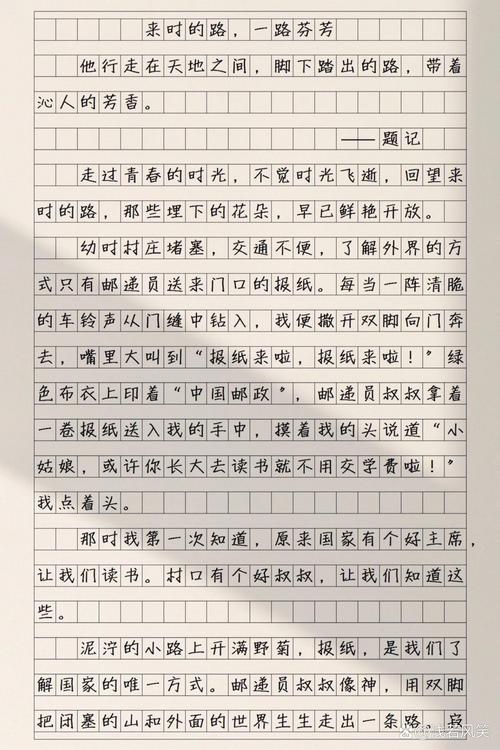 来时的路，一路芬芳
他行走在天地之间，脚下踏出的路，带着
沁人的芳香。
——题记
走过青春的时光，不觉时光飞逝，回望来
时的路，那些埋下的花朵，早已鲜艳开放。
幼时村庄堵塞，交通不便，了解外界的方
式只有邮递员送来门口的报纸。每当一阵清脆
的车铃声从门缝中钻入，我便撒开双脚向门奔
去，嘴里大叫到“报纸来啦，报纸来啦！”绿
色布衣上印着“中国邮政”，邮递员叔叔拿着
一卷报纸送入我的手中，摸着我的头说道“小
姑娘，或许你长大去读书就不用交学费啦！”
我点着头。
那时我第一次知道，原来国家有个好主席，
让我们读书。村口有个好叔叔，让我们知道这
些。
泥泞的小路上开满野菊，报纸，是我们了
解国家的唯一方式。邮递员叔叔像神，用双脚
把闭塞的山和外面的世界生生走出一条路。
浅若风笑